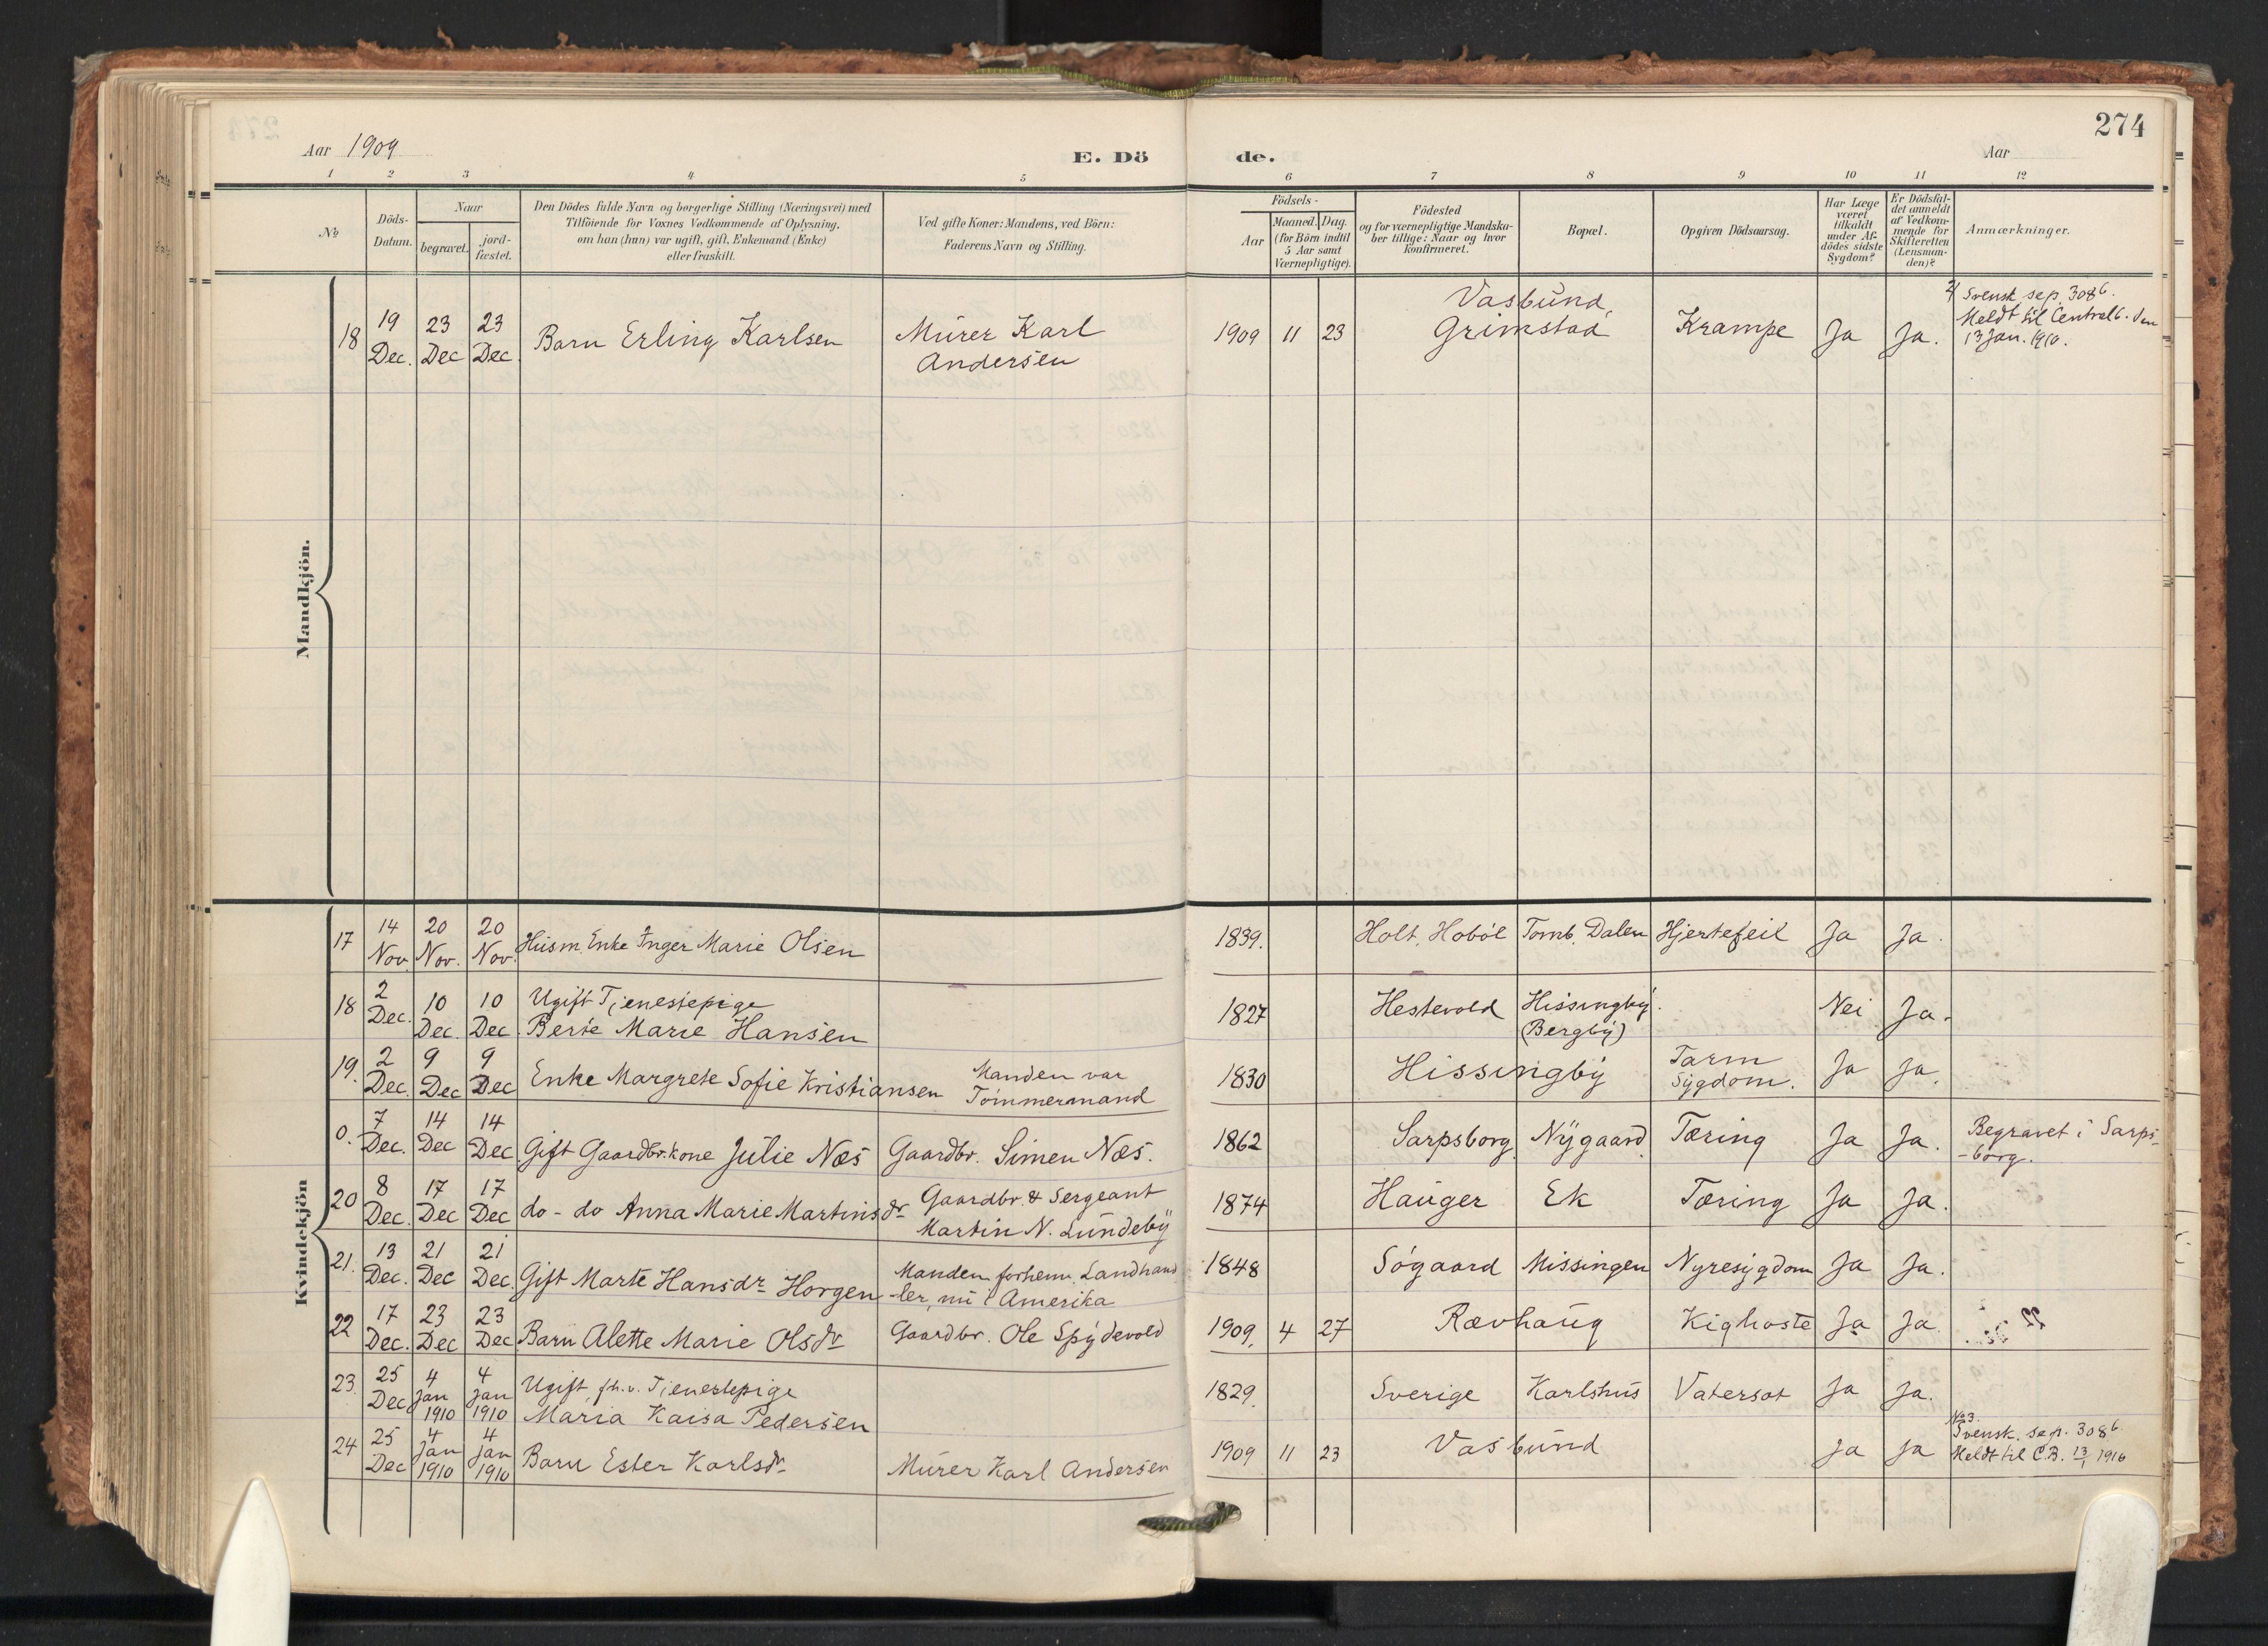 274
Aar 1909
E. Dö
de.
Aar
1 2 3 4 5 6 7 8 9 10 11 12
No
Döds-
Datum.
Naar
begravet.
jord-
fæstet.
Den Dödes fulde Navn og borgerlige Stilling (Næringsvei) med
Tilföiende for Voxnes Vedkommende af Oplysning,
om han (hun) var ugift, gift, Enkemand (Enke)
eller fraskilt.
Ved gifte Koner: Mandens, ved Börn:
Faderens Navn og Stilling.
Födsels-
Aar
Maaned. Dag.
(for Börn indtil
5 Aar samt
Værnepligtige).
Födested
og for værnepligtige Mandska-
ber tillige: Naar og hvor
konfirmeret.
Bopæl.
Opgiven Dödsaarsag.
Har Læge
været
tilkaldt
under Af-
dödes sidste
Sygdom?
Er Dödsfal-
det anmeldt
af Vedkom-
mende for
Skifteretten
(Lensman-
den)?
Anmærkninger.
Mandkjön.
18 19 Dec. 23 Dec 23 Dec. Barn Erling Karlsen Murer Karl
Andersen
1909 11 23 Vasbund,
Grimstad Krampe Ja Ja.
2/ Svensk, sep. 308 b.
Meldt til Centralb. den
13 Jan. 1910.
Kvindekjön
17 14 Nov 20 Nov. 20 Nov. Husm. Enke Inger Marie Olsen 1839. Holt, Hobøl Tomb. Dalen Hjertefeil Ja Ja.
18 2 Dec. 10 Dec. 10 Dec. Ugift Tjenestepige
Berte Marie Hansen 1827 Hestevold Hissingby.
(Bergby) Nei Ja.
19. 2 Dec. 9 Dec 9 Dec Enke Margrete Sofie Kristiansen Manden var
Tømmermand 1830 Hissingby Tarm
Sygdom. Ja Ja.
0. 7 Dec. 14 Dec 14 Dec Gift Gaardbr.kone Julie Næs Gaardbr. Simen Næs. 1862 Sarpsborg Nygaard. Tæring Ja Ja. Begravet i Sarps-
-borg.
20 8 Dec. 17 Dec 17 Dec do - do Anna Marie Martinsdr Gaardbr. & Sergeant
Martin N. Lundeby 1874 Hauger Ek Tæring Ja Ja.
21. 13 Dec. 21 Dec 21 Dec. Gift Marte Hansdr Horgen Manden forhenv. Landhand
-ler, nu i Amerika 1848 Søgaard Missingen Nyresygdom Ja Ja.
22 17 Dec. 23 Dec 23 Dec Barn Alette Marie Olsdr Gaardbr. Ole Spydevold 1909. 4 27 Rævhaug Kighoste Ja Ja.
23. 25 Dec 4 Jan 1910 4 Jan 1910 Ugift, fh.v. Tjenestepige
Maria Kaisa Pedersen 1829. Sverige Karlshus Vatersot Ja Ja.
24 25 Dec 4 Jan 1910 4 Jan 1910 Barn Ester Karlsdr. Murer Karl Andersen 1909 11 23 Vasbund Ja Ja
No 3.
Svensk. sep. 308 b
Meldt til C.B. 13/1 1910